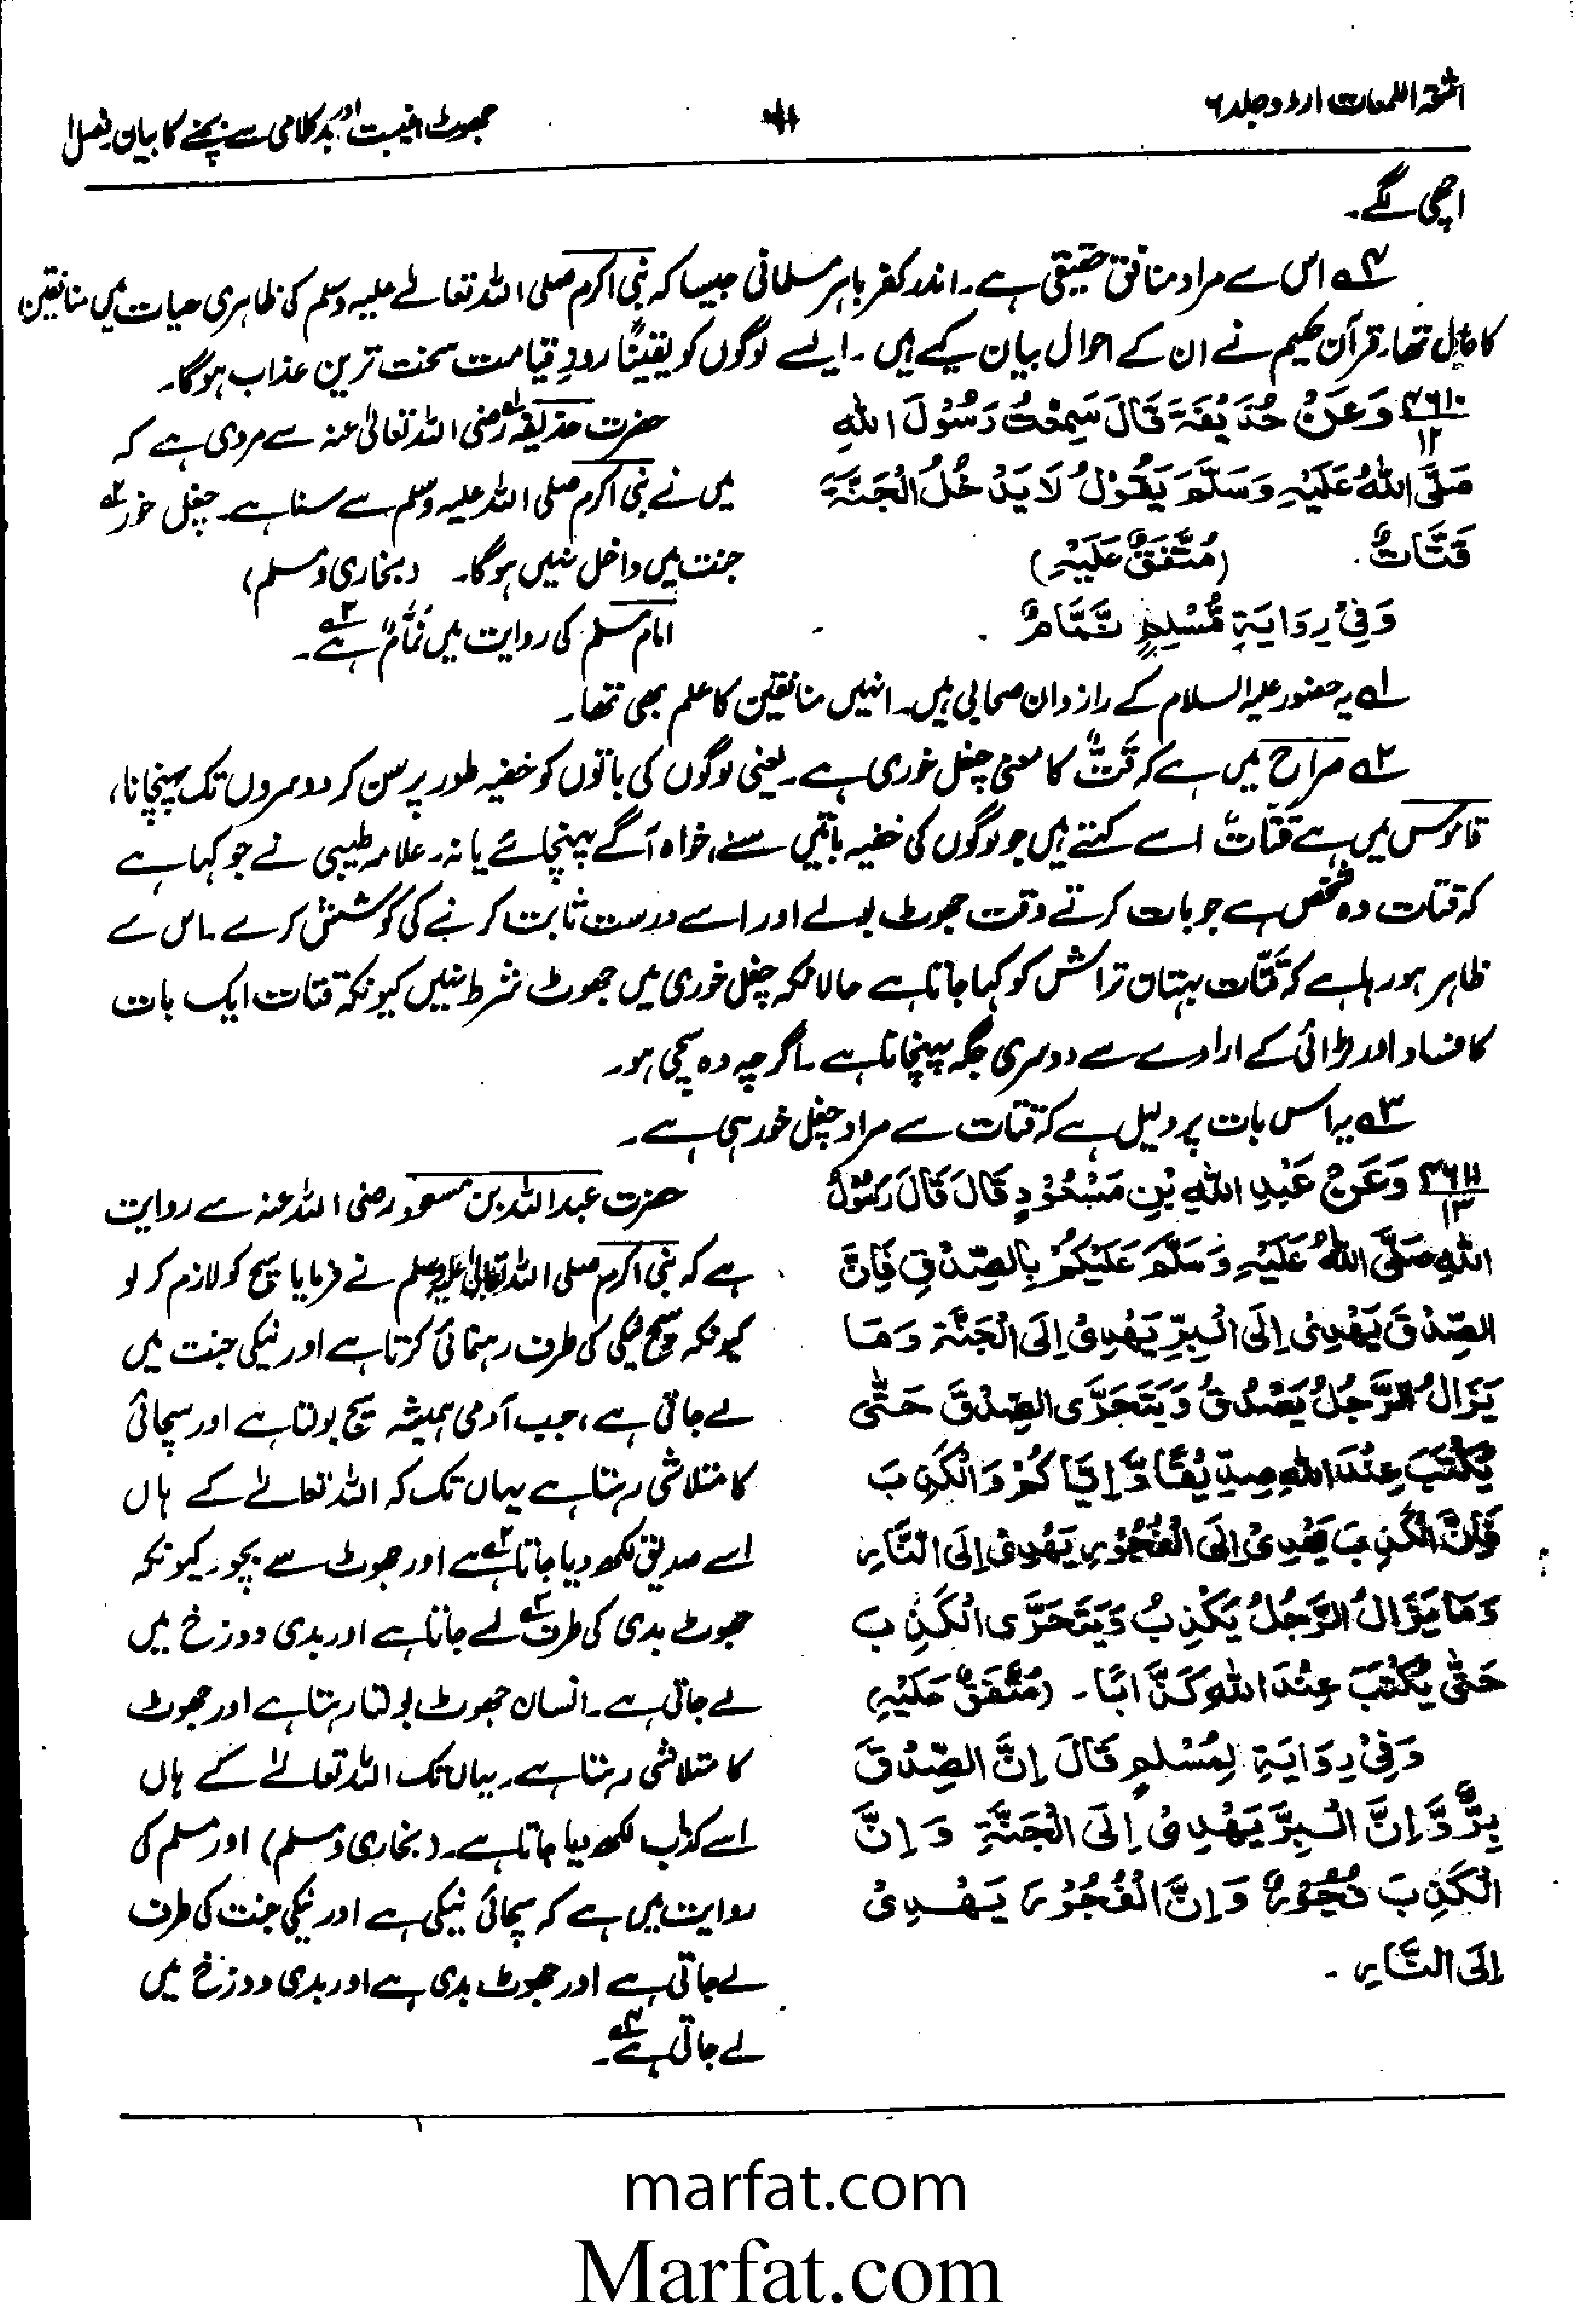 اشعۃ اللمعات اردو جلد ۶
جھوٹ، غیبت اور بدکلامی سے بچنے کا بیان فصل ۱
اچھی لگے۔
۴ے اس سے مراد منافق حقیقی ہے۔ اندر کفر باہر مسلمانی جیسا کہ نبی اکرم صلی اللہ تعالےٰ علیہ وسلم کی ظاہری حیات میں منافقین
کا حال تھا۔ قرآن حکیم نے ان کے احوال بیان کیے ہیں۔ ایسے لوگوں کو یقیناً روزِ قیامت سخت ترین عذاب ہوگا۔
۴۶۱۰/۱۲ وَعَنْ حُذَيْفَةَ قَالَ سَمِعْتُ رَسُوْلَ اللهِ
صَلَّى اللهُ عَلَيْهِ وَسَلَّمَ يَقُوْلُ لَا يَدْخُلُ الْجَنَّةَ
قَتَّاتٌ. (مُتَّفَقٌ عَلَيْهِ)
وَفِيْ رِوَايَةِ مُسْلِمٍ نَّمَّامٌ.
حضرت حذیفہ۱ے رضی اللہ تعالیٰ عنہ سے مروی ہے کہ
میں نے نبی اکرم صلی اللہ علیہ وسلم سے سنا ہے۔ چغل خور۲ے
جنت میں داخل نہیں ہوگا۔ (بخاری و مسلم)
امام مسلم کی روایت میں نَمَّامٌ ۳ے ہے۔
۱ے یہ حضور علیہ السلام کے راز دان صحابی ہیں۔ انہیں منافقین کا علم بھی تھا۔
۲ے صراح میں ہے کہ قَتٌّ کا معنی چغل خوری ہے۔ یعنی لوگوں کی باتوں کو خفیہ طور پر سن کر دوسروں تک پہنچانا،
قاموس میں ہے قَتَّاتٌ اسے کہتے ہیں جو لوگوں کی خفیہ باتیں سنے، خواہ آگے پہنچائے یا نہ۔ علامہ طیبی نے جو کہا ہے
کہ قتات وہ شخص ہے جو بات کرتے وقت جھوٹ بولے اور اسے درست ثابت کرنے کی کوشش کرے۔ اس سے
ظاہر ہو رہا ہے کہ قَتَّات بہتان تراش کو کہا جاتا ہے حالانکہ چغل خوری میں جھوٹ شرط نہیں کیونکہ قتات ایک بات
کا فساد اور لڑائی کے ارادے سے دوسری جگہ پہنچاتا ہے۔ اگرچہ وہ سچی ہو۔
۳ے یہ اس بات پر دلیل ہے کہ قتات سے مراد چغل خور ہی ہے۔
۴۶۱۱/۱۳ وَعَنْ عَبْدِ اللهِ بْنِ مَسْعُوْدٍ قَالَ قَالَ رَسُوْلُ
اللهِ صَلَّى اللهُ عَلَيْهِ وَسَلَّمَ عَلَيْكُمْ بِالصِّدْقِ فَاِنَّ
الصِّدْقَ يَهْدِىْ اِلَى الْبِرِّ يَهْدِىْ اِلَى الْجَنَّةِ وَمَا
يَزَالُ الرَّجُلُ يَصْدُقُ وَيَتَحَرَّى الصِّدْقَ حَتّٰى
يُكْتَبَ عِنْدَ اللهِ صِدِّيْقًا وَّاِيَّاكُمْ وَالْكَذِبَ
فَاِنَّ الْكَذِبَ يَهْدِىْ اِلَى الْفُجُوْرِ يَهْدِىْ اِلَى النَّارِ
وَمَا يَزَالُ الرَّجُلُ يَكْذِبُ وَيَتَحَرَّى الْكَذِبَ
حَتّٰى يُكْتَبَ عِنْدَ اللهِ كَذَّابًا۔ (مُتَّفَقٌ عَلَيْهِ)
وَفِيْ رِوَايَةٍ لِمُسْلِمٍ قَالَ اِنَّ الصِّدْقَ
بِرٌّ وَّاِنَّ الْبِرَّ يَهْدِىْ اِلَى الْجَنَّةِ وَاِنَّ
الْكَذِبَ فُجُوْرٌ وَاِنَّ الْفُجُوْرَ يَهْدِىْ
اِلَى النَّارِ۔
حضرت عبداللہ بن مسعود رضی اللہ عنہ سے روایت
ہے کہ نبی اکرم صلی اللہ تعالیٰ علیہ وسلم نے فرمایا سچ کو لازم کر لو
کیونکہ سچ نیکی کی طرف رہنمائی کرتا ہے اور نیکی جنت میں
لے جاتی ہے، جب آدمی ہمیشہ سچ بولتا ہے اور سچائی
کا متلاشی رہتا ہے یہاں تک کہ اللہ تعالےٰ کے ہاں
اسے صدیق لکھ دیا جاتا ہے اور جھوٹ سے بچو۔ کیونکہ
جھوٹ بدی کی طرف لے جاتا ہے اور بدی دوزخ میں
لے جاتی ہے۔ انسان جھوٹ بولتا رہتا ہے اور جھوٹ
کا متلاشی رہتا ہے۔ یہاں تک اللہ تعالےٰ کے ہاں
اسے کذاب لکھ دیا جاتا ہے۔ (بخاری و مسلم) اور مسلم کی
روایت میں ہے کہ سچائی نیکی ہے اور نیکی جنت کی طرف
لے جاتی ہے اور جھوٹ بدی ہے اور بدی دوزخ میں
لے جاتی ہے۔۴ے
marfat.com
Marfat.com